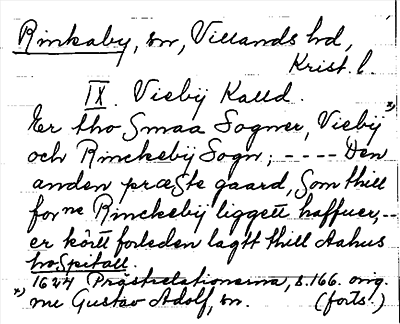 Rinkaby, sn, Villands hd,
Krist. l.
IX. Viebÿ Kalld. x)
Er tho Smaa Sogner, Viebÿ
och Rinckebÿ Sogn; ---- Den
anden præste gaard, Som thill
forne Rinckebÿ liggett haffuer, --
er körtt forleden lagtt thill Aahus
hospitall
1624 Prästrelationerna, s. 166. orig.
x) nu Gustav Adolf, sn. (forts.)